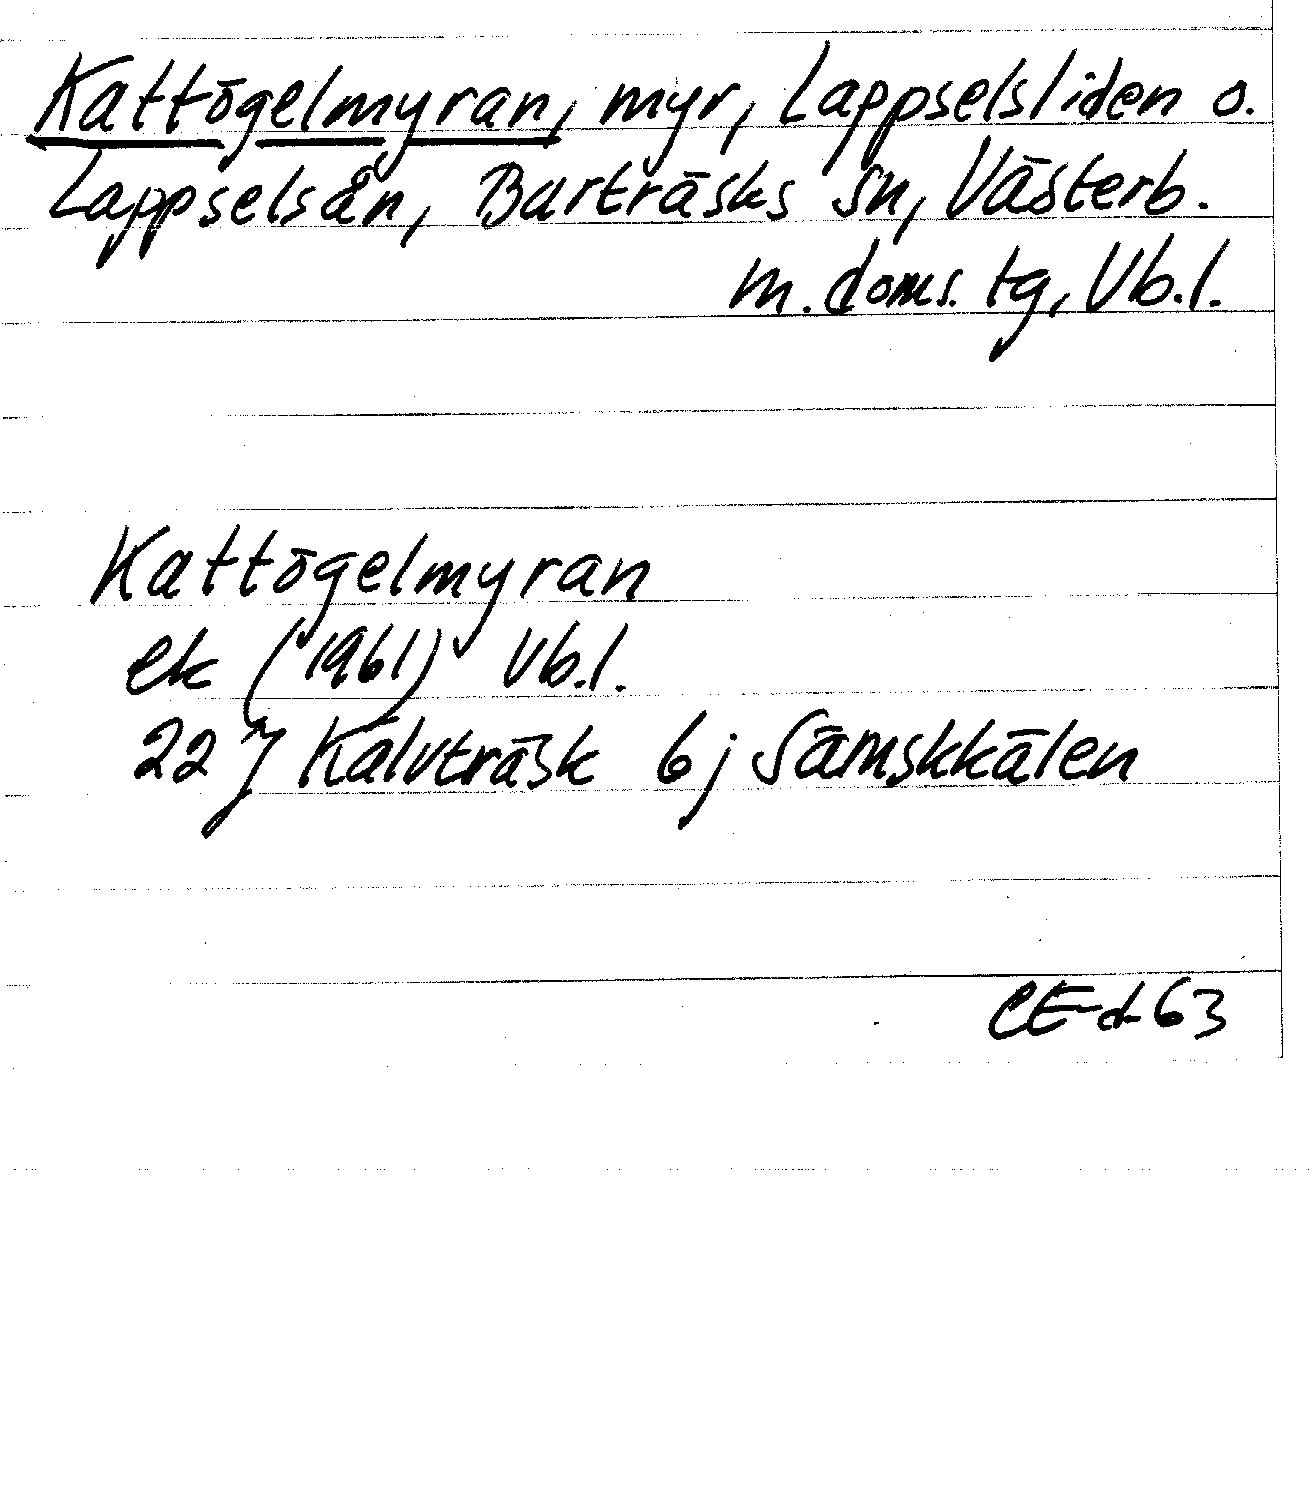 Kattögelmyran, myr, Lappselsliden o.
Lappselsån, Burträsks sn, Västerb.
m. doms. tg, Vb.l.
Kattögelmyran
ek (1961) Vb.l.
22 J Kalvträsk 6 j Sämskkälen
CE-d 63